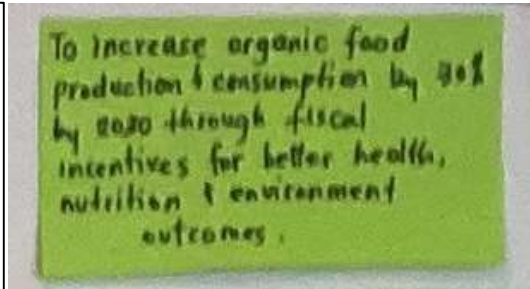 To increase organic food
production & consumption by
by through fiscal
incentives for better health,
nutrition & environment
outcomes.